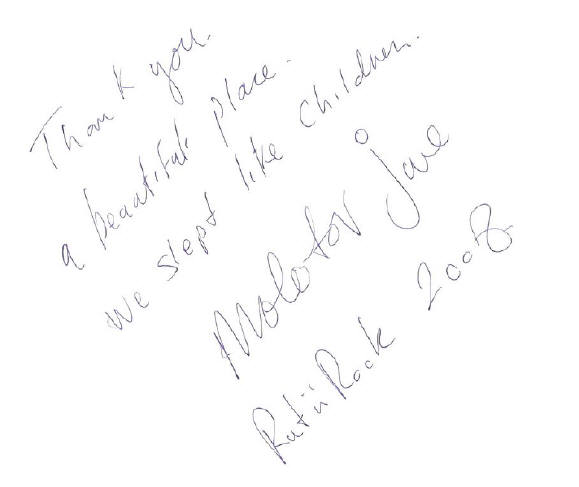 Thank you.
a beautiful place.
we slept like children.
Molotov jive
Rut'n'Rock 2008